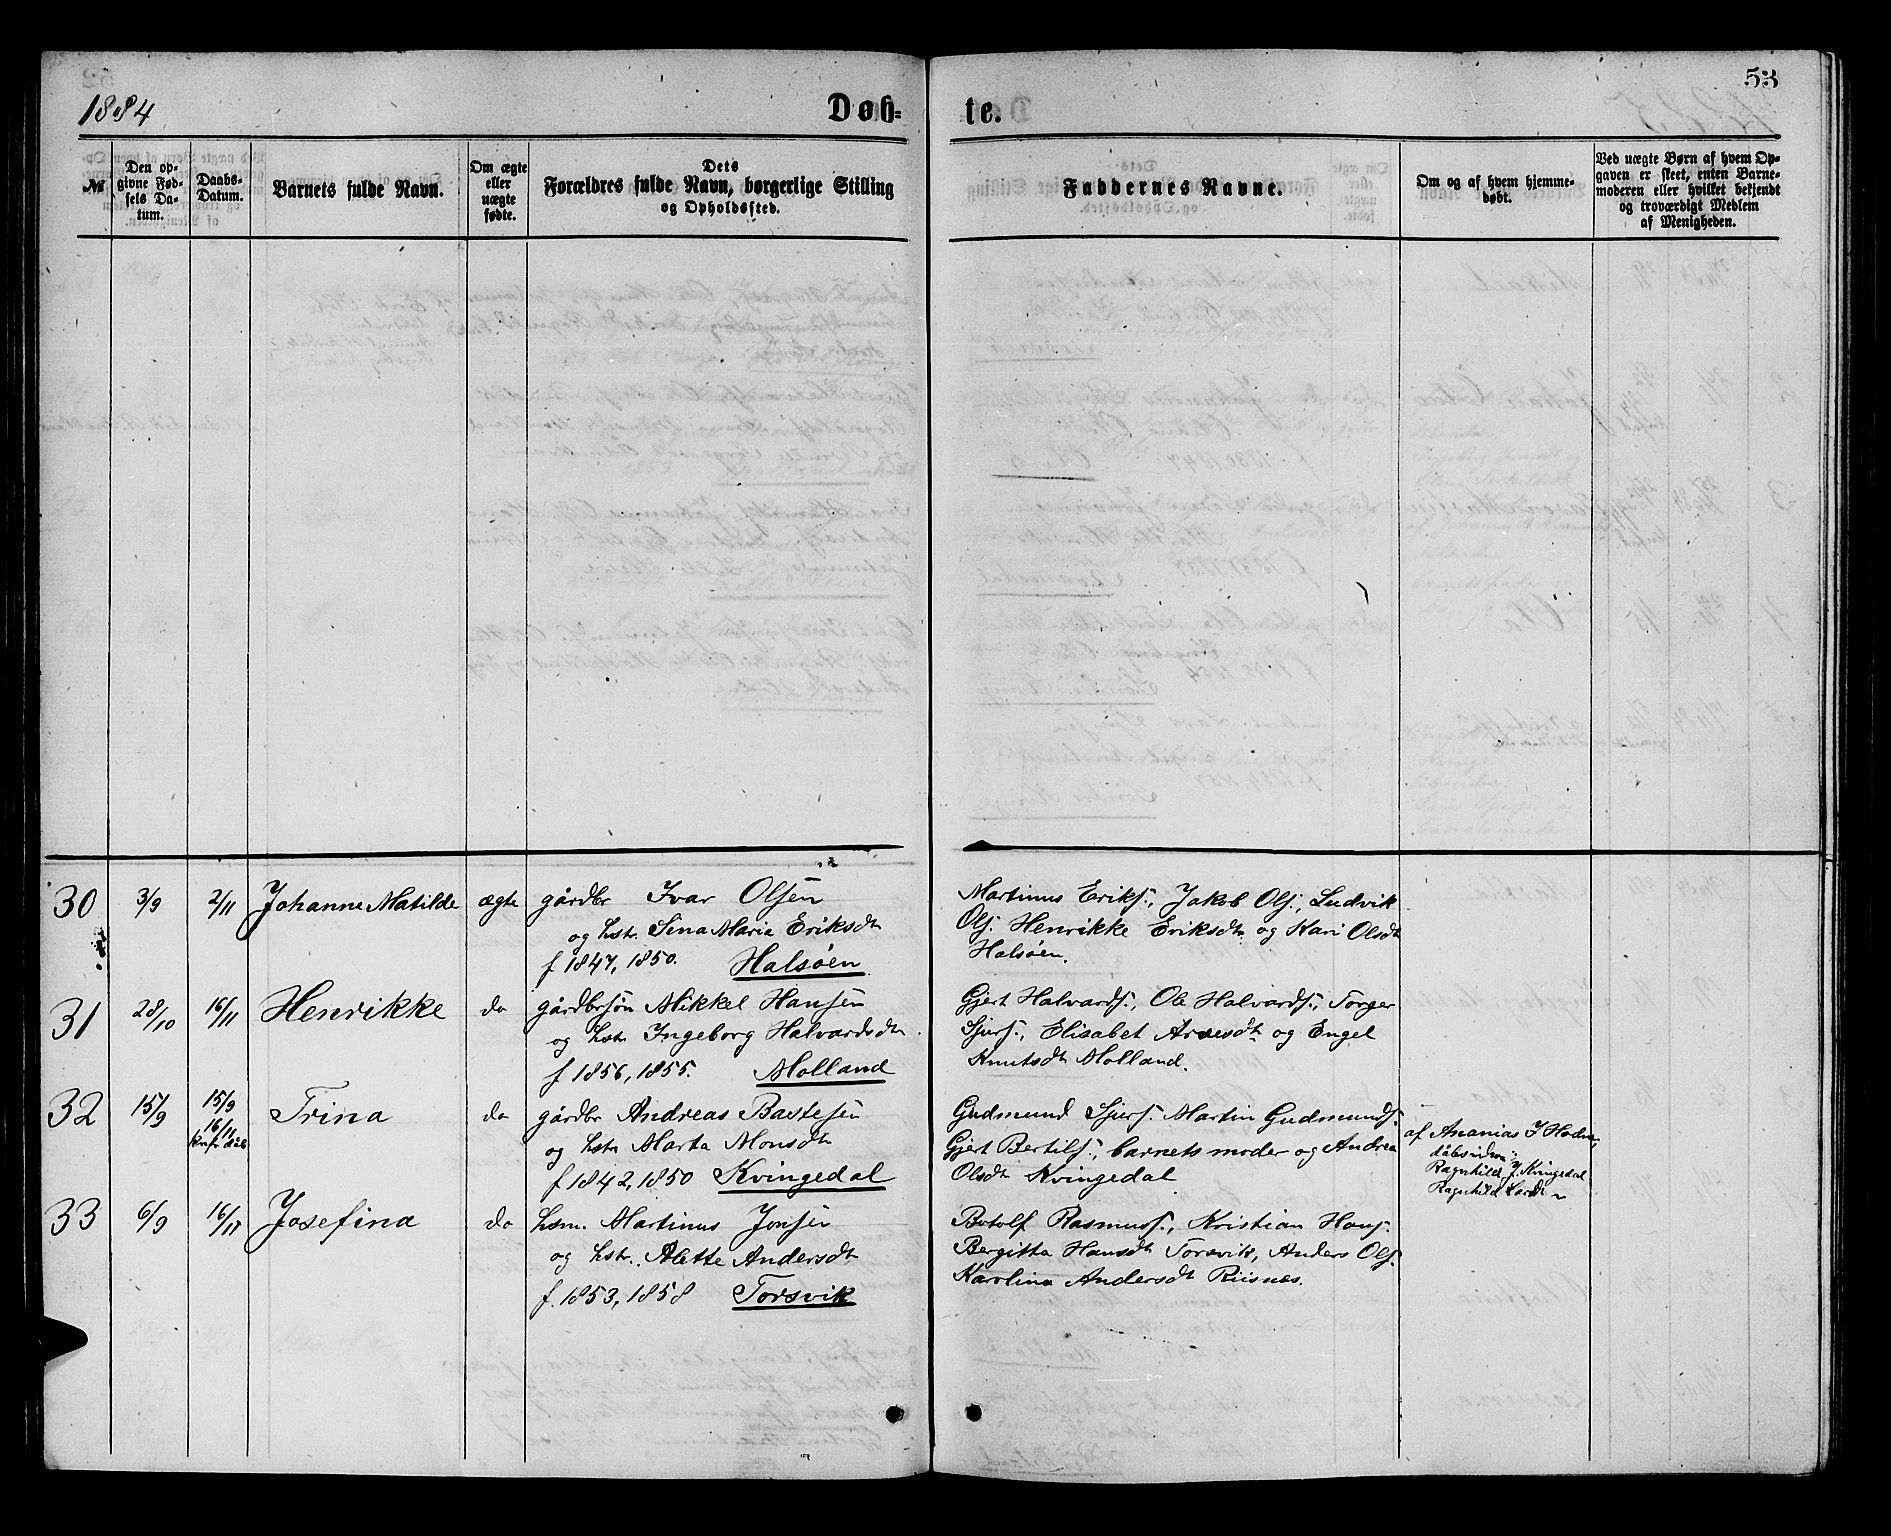 53
1884 Døb= te.
№
Den op-
givne Fød-
sels Da-
tum.
Daabs-
Datum.
Barnets fulde Navn.
Om ægte
eller
uægte
fødte.
Dets
Forældres fulde Navn, borgerlige Stilling
og Opholdssted.
Faddernes Navne.
Om og af hvem hjemme-
døbt.
Ved uægte Børn af hvem Op-
gaven er skeet, enten Barne-
moderen eller hvilket bekjendt
og troværdigt Medlem
af Menigheden.
30 3/9 2/11 Johanne Matilde ægte gårdbr Ivar Olsen
og hstr. Sina Maria Eriksdtr
f 1847, 1850. Halsøen
Martinus Eriks., Jakob Ols., Ludvik
Ols. Henrikke Eriksdtr og Kari Olsdtr
Halsøen.
31 28/10 16/11 Henrikke do gårdbrsøn Mikkel Hansen
og hstr Ingeborg Halvardsdtr
f 1856, 1855. Molland
Gjert Halvards., Ole Halvards., Torger
Sjurs., Elisabet Arnesdtr og Engel
Knutsdtr Molland.
32 15/9 15/9
16/11
Trina do gårdbr Andreas Bastesen
og hstr Marta Monsdtr
f 1842, 1850 Kvingedal
Gudmund Sjurs. Martin Gudmunds.
Gjert Bertils., barnets moder og Andrea
Olsdtr Kvingedal
af Ananias J
Ragnhild J. Kvingedal
Ragnhild Larsdtr
33 6/9 16/11 Josefina do hsm. Martinus Jonsen
og hstr. Alette Andersdtr
f. 1853, 1858 Torsvik
Botolf Rasmuss., Kristian Hans.
Bergitta Hansdtr Torsvik, Anders Ols.
Karolina Andersdtr Risnes.